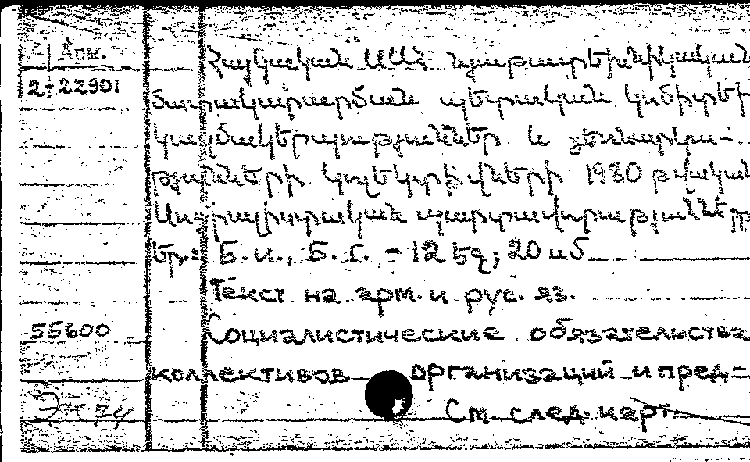 Арм.
2-22901
Հայկական ՍՍՀ
պետական կոմիտեի
կազմակերպությունների և ձեռնարկու-
թյունների կոլեկտիվների 1980 թվական
Սոցիալիստական պարտավորություննե
Եր.: Б.и., Б.г. - 12 էջ; 20 սմ
Текст на арм. и рус. яз.
55600
Социалистические обязательства
коллективов организаций и пред-
См. след. карт.